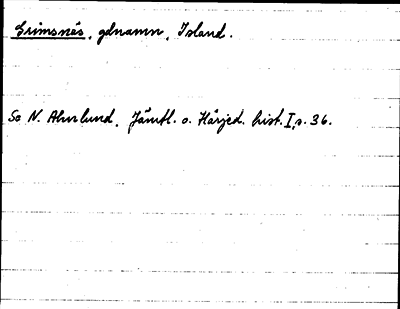 Grimsnäs, gdnamn, Island.
Se N. Ahnlund, Jämtl. o. Härjed. hist. I, s. 36.